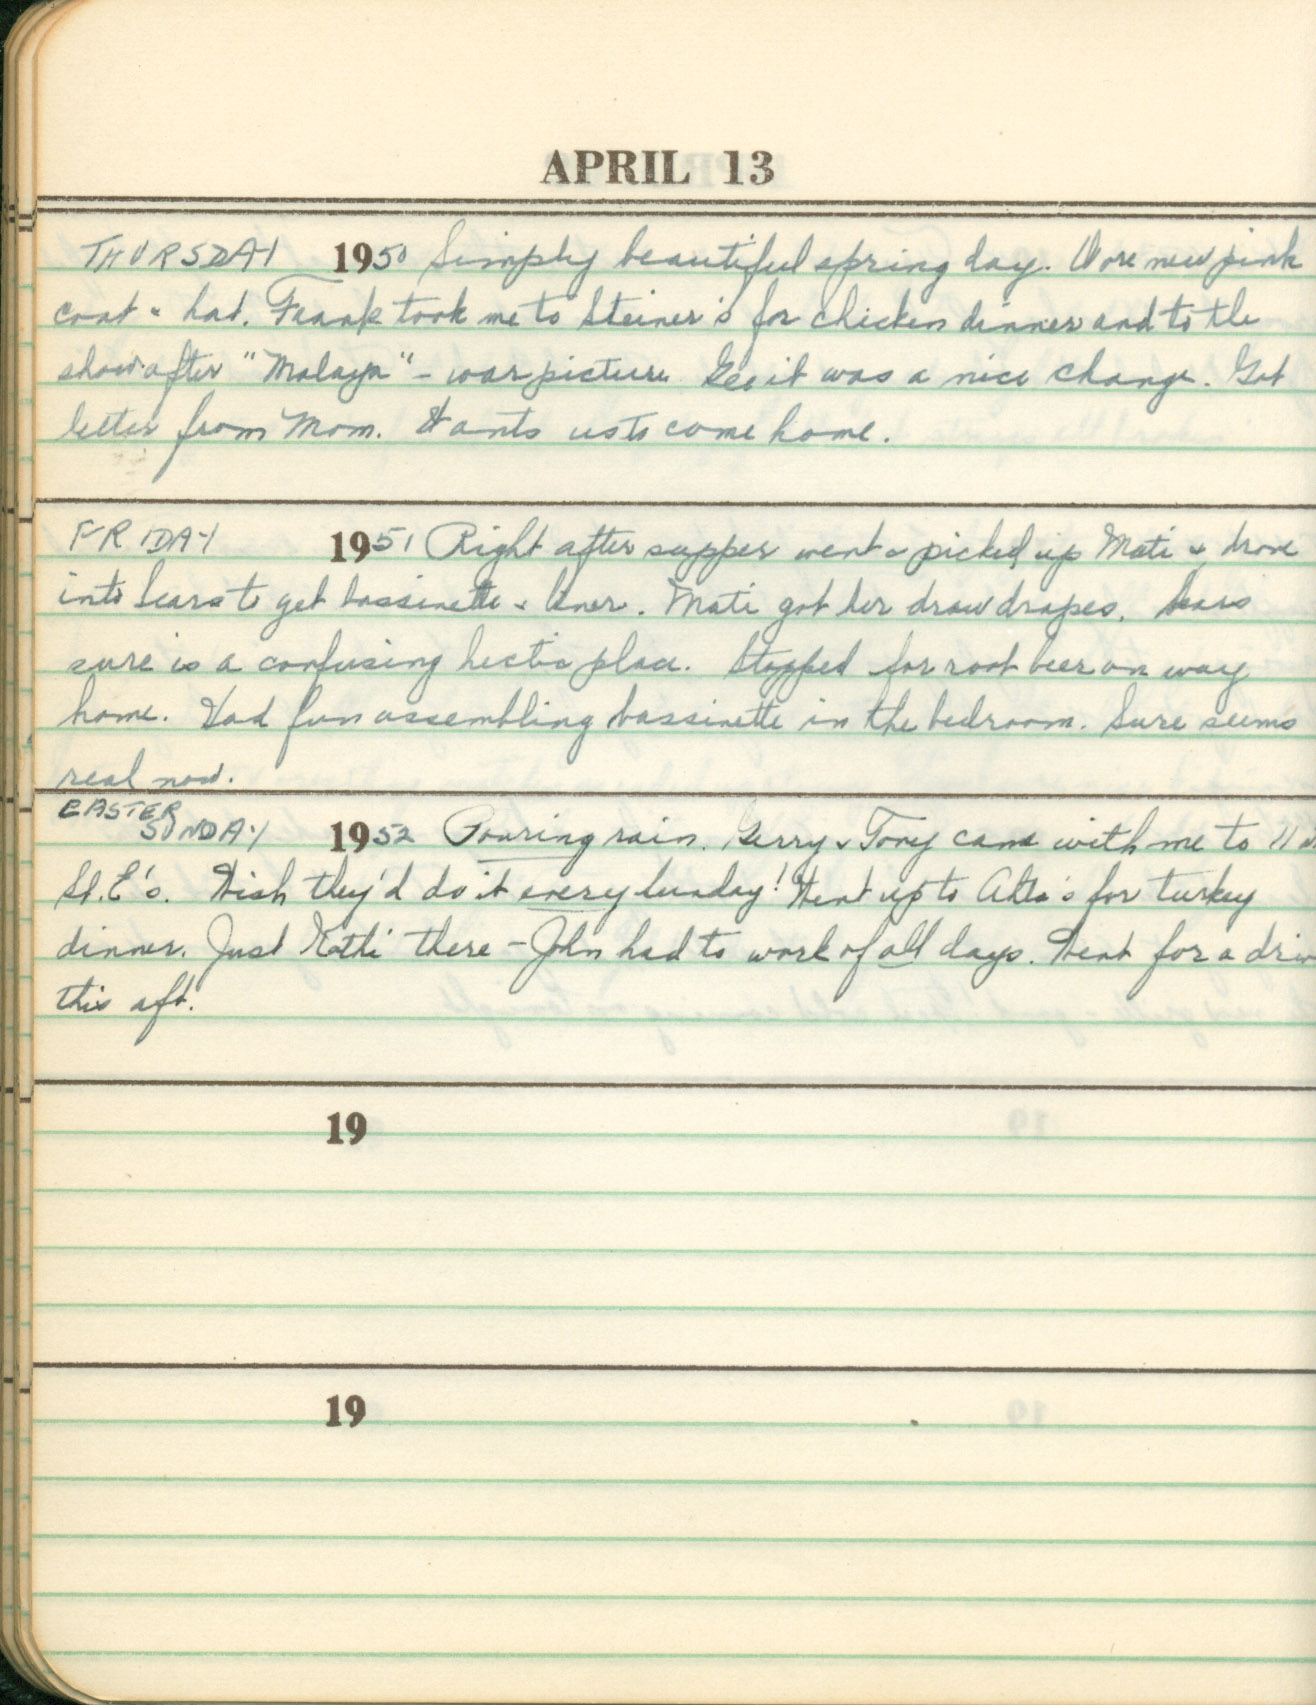 APRIL 13
THURSDAY 1950 Simply beautiful spring day. Wore new pink
coat & hat. Frank took me to Steiner's for chicken dinner and to the
show after "Malaya" - war picture. Gee it was a nice change. Got
letter from Mom. Wants us to come home.
FRIDAY 1951 Right after supper went & picked up Mati & drove
into Sears to get bassinette & liner. Mati got her draw drapes. Sears
sure is a confusing hectic place. Stopped for root beer on way
home. Had fun assembling bassinette in the bedroom. Sure seems
real now.
EASTER
SUNDAY 1952 Pouring rain. Gerry & Tony came with me to 11
St. E's. Wish they'd do it every Sunday! Went up to Alta's for turkey
dinner. Just Kathi there - John had to work of all days. Went for a
this aft.
19
19